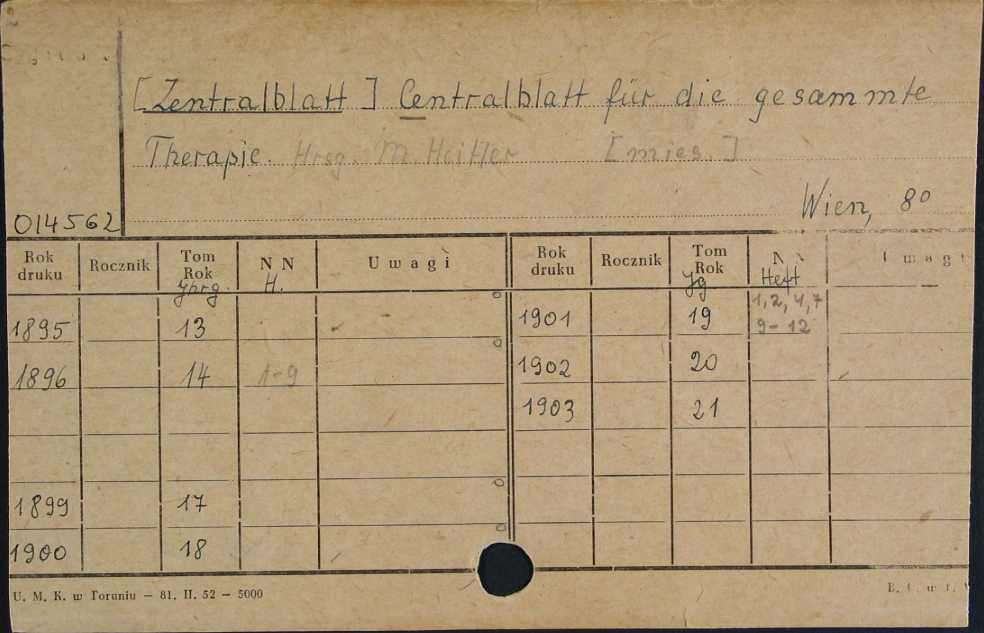 [Zentralblatt] Centralblatt für die gesammte
Therapie. Hrsg. M. Heitler [mies.]
014562
Wien, 8º
Rok druku Rocznik Tom Rok Jhrg. N N H. Uwagi Rok druku Rocznik Tom Rok Jg N N Heft Uwagi
1895 13 1901 19 1,2,4,7
9-12
1896 14 1-9 1902 20
1903 21
1899 17
1900 18
U. M. K. w Toruniu — 81. II. 52 — 5000